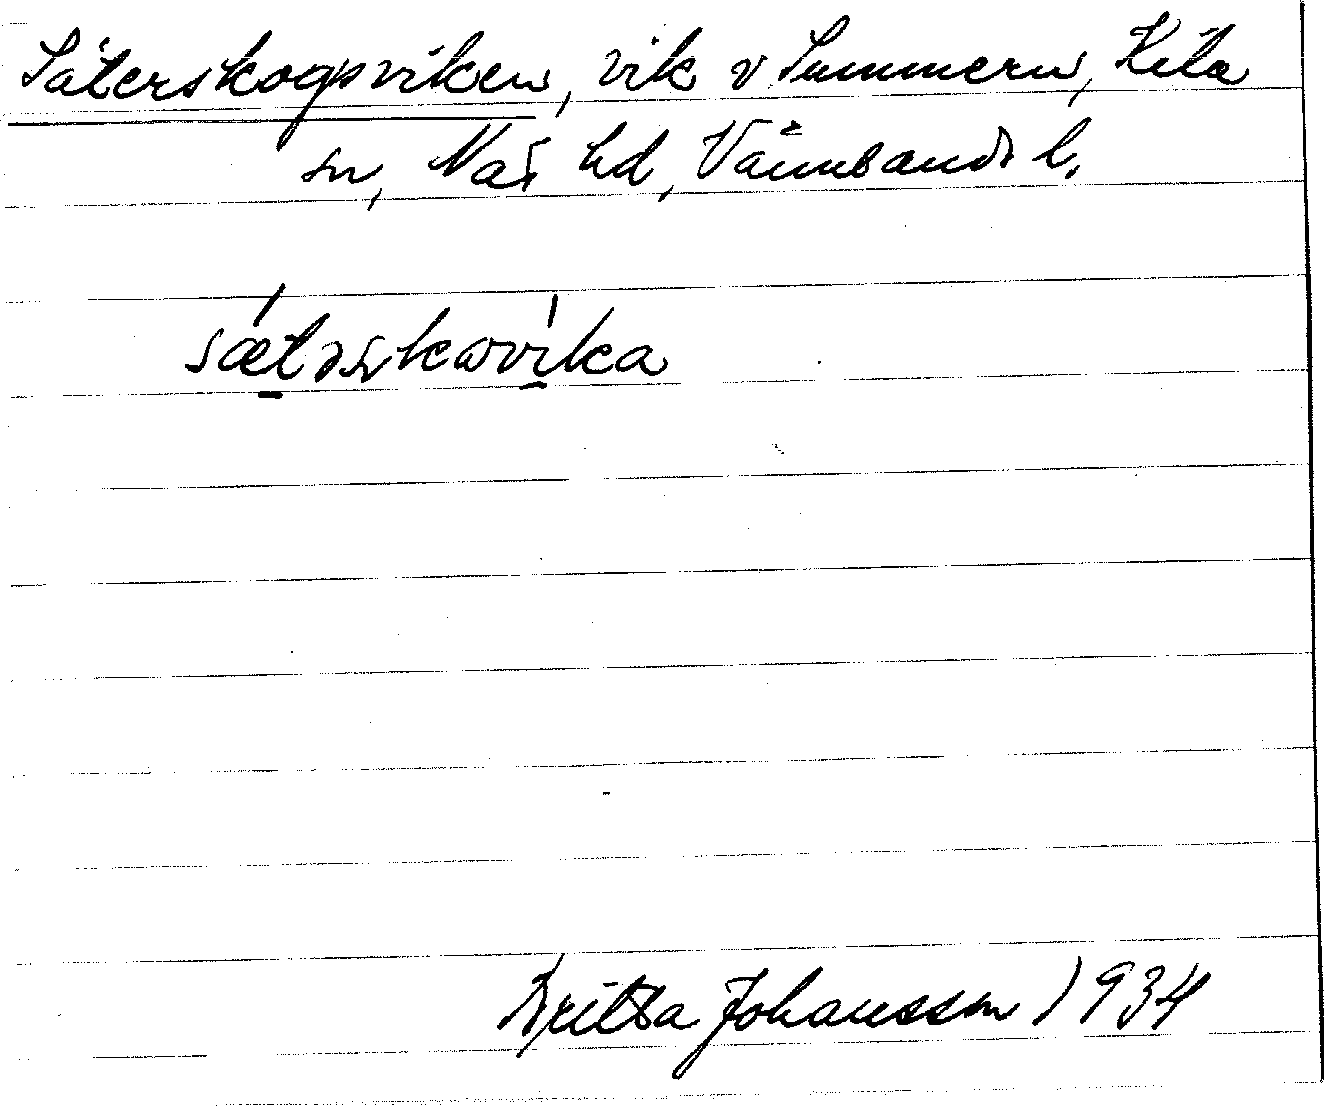 Säterskogsviken, vik v Summeru, Kila
sn, Näs hd, Värmlands l.
Britta Johansson 1934